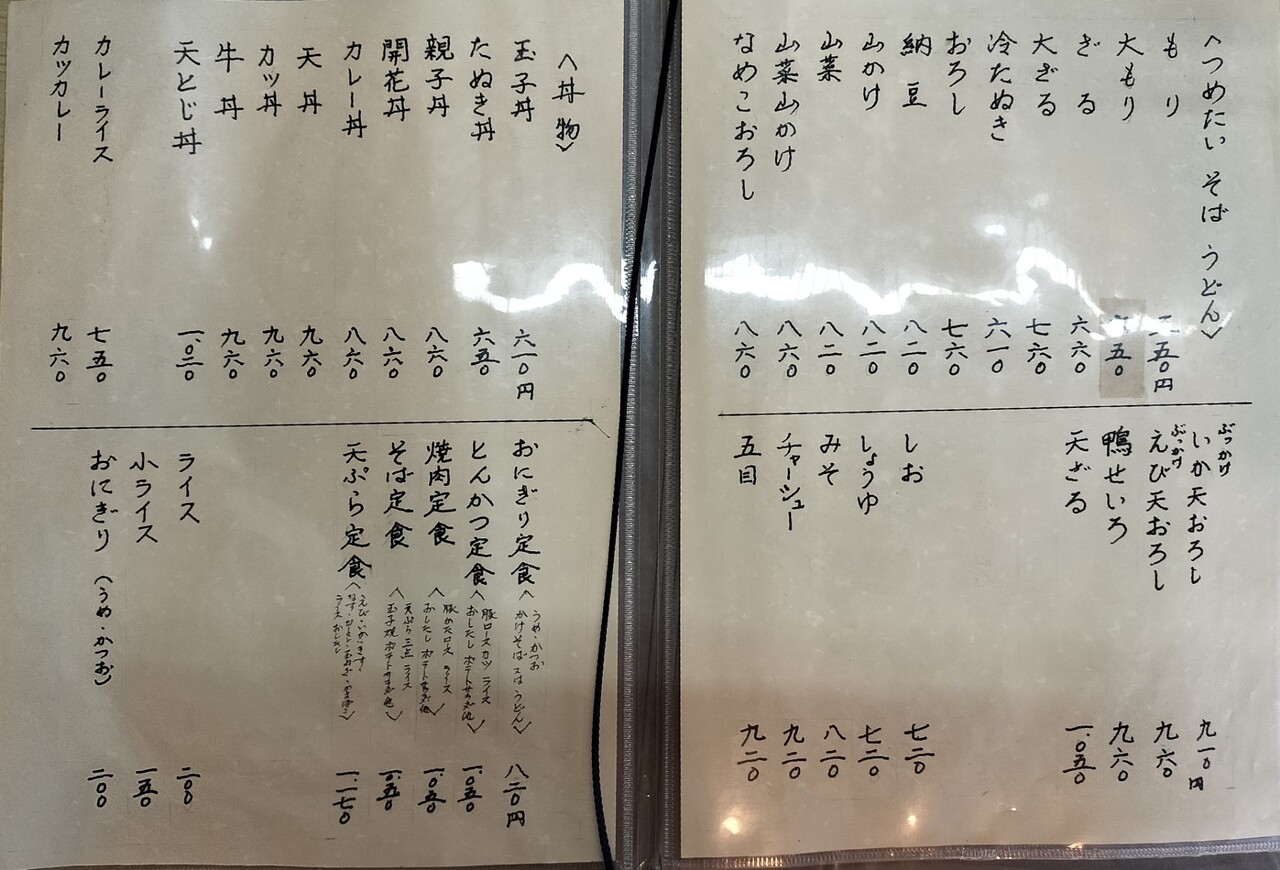 〈つめたい そば うどん〉
もり
大もり
ざる 六六〇
大ざる 七六〇
冷たぬき 六一〇
おろし 七六〇
納豆 八二〇
山かけ 八二〇
山菜 八二〇
山菜山かけ 八六〇
なめこおろし 八六〇
ぶっかけ
いか天おろし 九一〇円
ぶっかけ
えび天おろし 九六〇
鴨せいろ 九六〇
天ざる 一、〇五〇
しお 七二〇
しょうゆ 七二〇
みそ 八二〇
チャーシュー 九二〇
五目 九二〇
〈丼物〉
玉子丼 六一〇円
たぬき丼 六五〇
親子丼 八六〇
開花丼 八六〇
カレー丼 八六〇
天丼 九六〇
カツ丼 九六〇
牛丼 九六〇
天とじ丼 一、〇二〇
カレーライス 七五〇
カツカレー 九六〇
おにぎり定食 〈うめ・かつお
かけそば 又は うどん〉 八二〇円
とんかつ定食 〈豚ロースカツ ライス
おしたし ポテトサラダ他〉 一、〇五〇
焼肉定食 〈豚かたロース ライス
おしたし ポテトサラダ他〉 一、〇五〇
そば定食 〈天ぷら三点 ライス
玉子焼 ポテトサラダ他〉 一、〇五〇
天ぷら定食 〈えび・いか・きす
ライス おしたし〉 一、一七〇
ライス 二〇〇
小ライス 一五〇
おにぎり (うめ・かつお) 二〇〇